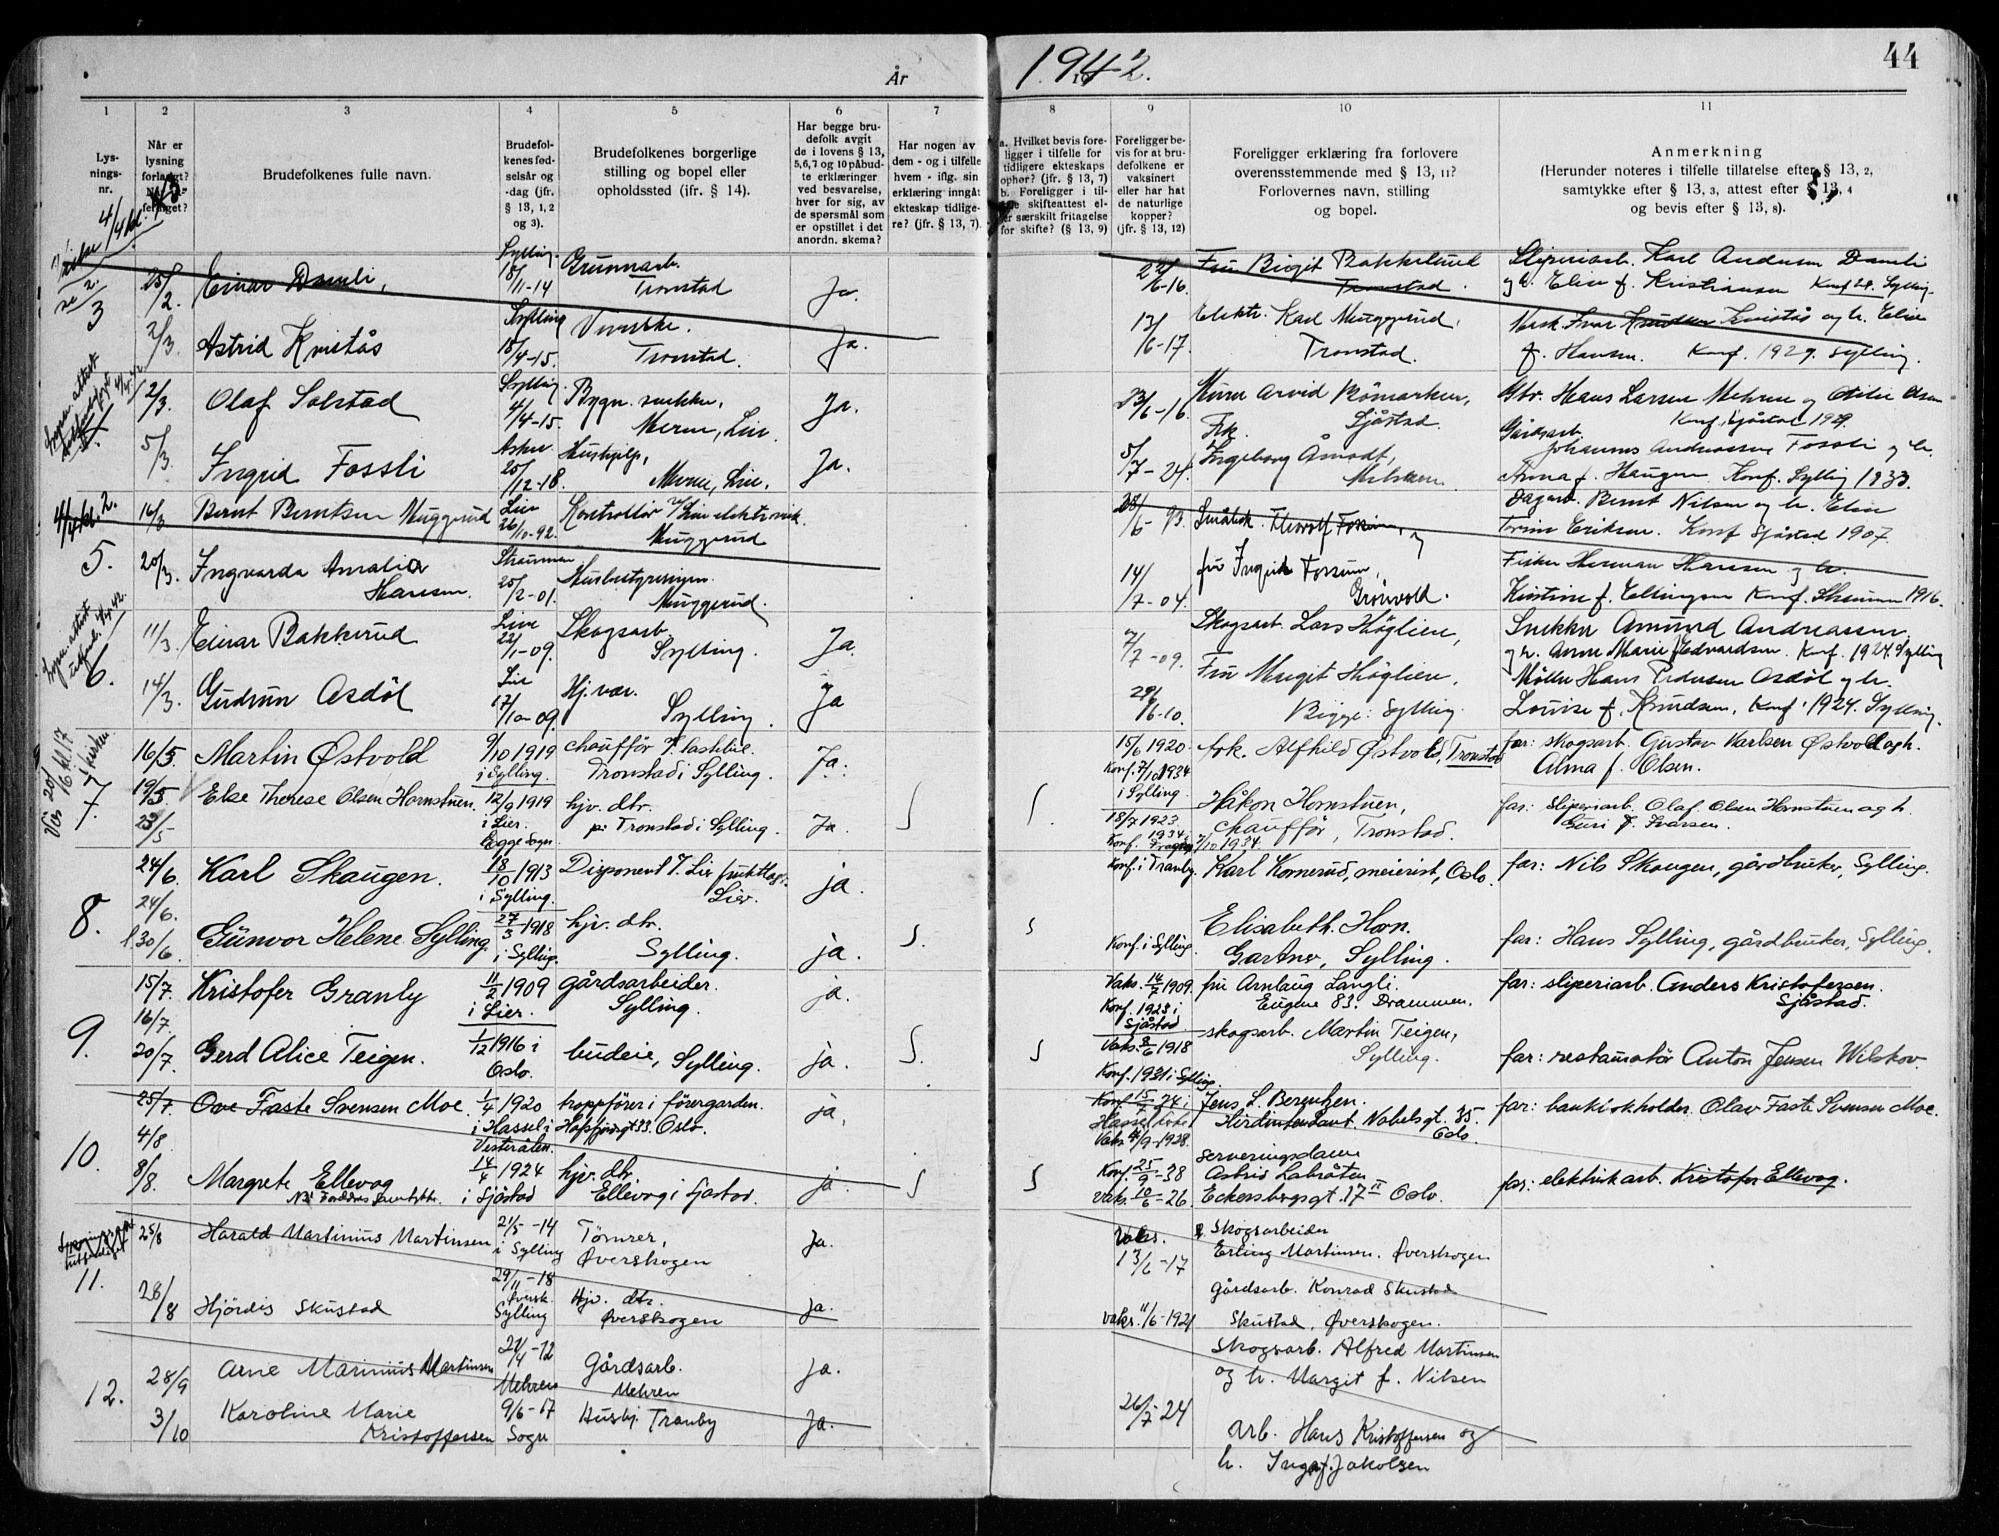 År 1942.
44
1
2
3
4
5
6
7
8
9
10
11
Lys-
nings-
nr.
Når er
lysning
Brudefolkenes fulle navn.
Brudefol-
kenes fød-
selsår og
-dag (jfr.
§ 13, 1, 2
og 3).
Brudefolkenes borgerlige
stilling og bopel eller
opholdssted (jfr. § 14).
Har begge bru-
defolk avgit
de i lovens § 13,
5,6,7 og 10 påbud-
te erklæringer
ved besvarelse,
hver for sig, av
de spørsmål som
er opstillet i det
anordn. skema?
Har nogen av
dem - og i tilfelle
hvem - iflg. sin
erklæring inngåt
ekteskap tidlige-
re? (jfr. § 13, 7).
a. Hvilket bevis fore-
ligger i tilfelle for
tidligere ekteskaps
ophør? (jfr. § 13, 7)
b. Foreligger i til-
felle skifteattest el-
ler særskilt fritagelse
for skifte? (§ 13, 9)
Foreligger be-
vis for at bru-
defolkene er
vaksinert
eller har hat
de naturlige
kopper?
(jfr. § 13, 12)
Foreligger erklæring fra forlovere
overensstemmende med § 13, 11?
Forlovernes navn, stilling
og bopel.
Anmerkning
(Herunder noteres i tilfelle tillatelse efter § 13, 2,
samtykke efter § 13, 3, attest efter § 13, 4
og bevis efter § 13, 8).
3
25/2.
Einar Damli,
Sylling
18/11-14
Grunnarb.
Tronstad
Ja.
22/6-16.
Fru Birgit Bakkelund
Tronstad.
Sliperiarb. Karl Andersen Damli
og h. Elise f. Kristiansen Konf 28. Sylling.
2/3.
Astrid Kvistås
Sylling
18/4-15.
Tronstad.
Ja.
13/6-17.
Elektr. Karl Muggerud,
Tronstad.
Kvistås og h. Elise
f. Hansen. Konf. 1929. Sylling.
2/3.
Olaf Solstad
Sylling.
4/4-15.
Bygn. snekker,
Meren, Lier.
Ja.
23/6-16.
Murer Arvid Römarken,
Sjåstad.
Gbr. Hans Larsen Mehren og Otilie Olsen
Konf. Sjåstad 1929.
5/3.
Ingrid Fossli
Asker
25/12-18.
Hushjelp,
Meren, Lier.
Ja.
5/7-24.
Frk.
Ingeborg Åmodt,
Gårdsarb.
Johannes Andreassen Fossli og h.
Anna f. Haugen Konf. Sylling 1933.
4/4 kl. 2.
5.
16/3
Bernt Berntsen Muggerud
Lier
26/10-92.
Kontrollör v/ Lier elektr.verk.
Muggerud
28/6-93.
Småbr. Thorolf Fossum, og
Dagarb. Bernt Nilsen og h. Elise
Torine Eriksen. Konf Sjåstad 1907.
20/3.
Ingvarda Amalia
Hansen.
Strømmen
25/2-01.
Husbestyrerinnen.
Muggerud.
14/7-04.
fru Ingrid Fossum,
Grönvold.
Fisker Herman Hansen og h.
Kristine f. Ellingsen Konf. Strømmen 1916.
6.
11/3.
Einar Bakkerud
Lier
22/1-09.
Skogsarb.
Sylling.
Ja.
7/7-09.
Skogsarb. Lars Höglien,
Snekker Amund Andreassen,
og h. Anne Marie f. Edvardsen. Konf. 1924. Sylling
14/3.
Gudrun Asdöl
Lier
17/10-09.
Hj.vær.
Sylling.
Ja
29/6-10.
Fru Margit Höglien,
Sylling
Möller Hans Pedersen Asdöl og h.
Louise f. Knudsen, Konf. 1924. Sylling.
Vies 20/5 kl 17
i kirken
7.
16/5.
Martin Østvold
9/10 1919
i Sylling.
chaufför f. lastebil.
Tronstad i Sylling.
Ja.
15/6 1920.
Konf. 7/10 1934
i Sylling.
frk. Alfhild Østvold, Tronstad
far: skogsarb. Gustav Karlsen Østvold og h.
Alma f. Olsen.
19/5.
23/5
Else Therese Olsen Hornstuen.
12/9 1919
i Lier.
Egge Sogn
hjv. dtr.
på Tronstad i Sylling.
Ja.
18/7 1923.
Håkon Hornstuen,
chauffør, Tronstad.
far: sliperiarb. Olaf Olsen Hornstuen og h.
Guri f. Ivarsen.
8.
24/6.
Karl Skaugen.
18/10 1913
i Sylling.
Disponent f. Lier fruktlager.
Lier.
ja.
Konf. i Tranby.
Karl Kornerud, meierist, Oslo.
far: Nils Skaugen, gårdbruker, Sylling.
24/6.
l. 30/6.
Günvor Helene Sylling.
27/3 1918
i Sylling.
hjv. dtr.
Sylling.
ja.
Konf. i Sylling.
Elisabeth Horn.
Gartner, Sylling.
far: Hans Sylling, gårdbruker, Sylling.
9.
15/7.
Kristofer Granly
11/2 1909
i Lier.
gårdsarbeider.
Sylling.
ja.
Vaks. 14/7 1909.
Konf. 1923 i
Sjåstad
fru Arnlaug Langli.
Eugene 83. Drammen.
far: sliperiarb. Anders Kristofersen.
Sjåstad.
16/7.
20/7.
Gerd Alice Teigen.
1/12 1916 i
Oslo.
budeie, Sylling.
ja.
Vaks. 8/6 1918
Konf. 1931 i Sylling.
skogsarb. Martin Teigen,
Sylling.
far: restauratör Anton Jensen Wilskov.
10.
25/7.
Ove Faste Svensen Moe.
1/4 1920
i Hassel i
Vesterålen.
troppförer i förergarden.
Oslo.
ja.
Jens L. Berentzen.
Hirdintendant. Nobelsgt. 35.
Oslo.
far: bankbokholder Olav Faste Svensen Moe.
4/8
8/8.
Margrete Ellevog
14/4 1924
i Sjåstad
hjv. dtr.
Ellevog i Sjåstad.
ja.
Konf. 25/9-38
Vaks. 10/6-26.
serveringsdame
Astrid Labråten
Eckersbergsgt. 17 II Oslo.
far: elektrikarb. Kristofer Ellevog.
11.
25/8
Harald Martinius Martinsen
21/5-14
i Sylling
Tömrer,
Øverskogen
Ja.
Vaks.
13/6-17
Skogsarbeider
Erling Martinsen. Øverskogen
28/8
Hjördis Skustad
29/11-18
Øversk.
Sylling
Hjv. dtr.
Øverskogen
Ja.
vaks. 11/6-1921
Gårdsarb. Konrad Skustad
Skustad, Øverskogen.
12.
28/9
Arne Marinius Martinsen
21/4-12
Mehren
Gårdsarb.
Mehren
Ja.
Skogsarb. Alfred Martinsen
og h. Margit f. Nilsen
3/10
Karoline Marie
Kristoffersen
9/6-17
Sogn
Hushj. Tranby
Ja.
26/7-24
Arb. Hans Kristoffersen og
h. Inga f. Jakobsen